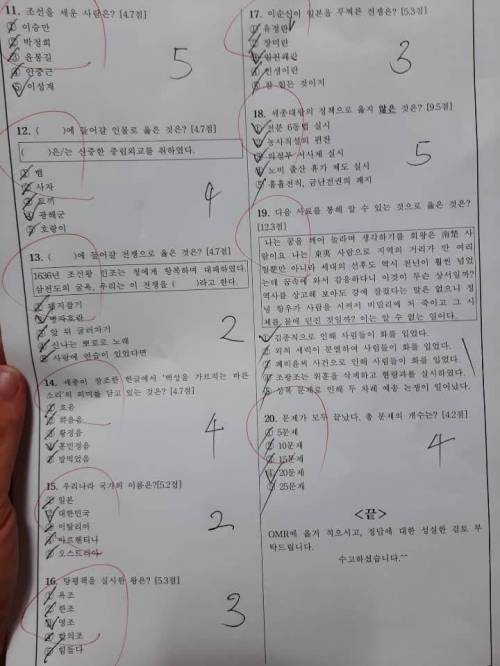 11. 조선을 세운 사람은? [4.7점]
① 이승만
② 박정희
③ 윤봉길
④ 안중근
⑤ 이성계
5
12. ( )에 들어갈 인물로 옳은 것은? [4.7점]
( )은/는 신중한 중립외교를 취하였다.
① 뱀
② 사자
③ 토끼
④ 광해군
⑤ 호랑이
4
13. ( )에 들어갈 전쟁으로 옳은 것은? [4.7점]
1636년 조선왕 인조는 청에게 항복하며 대패하였다.
삼전도의 굴욕, 우리는 이 전쟁을 ( )라고 한다.
① 돼지잡기
② 병자호란
③ 앞 뒤 굴러가기
④ 신나는 뽀로로 노래
⑤ 사랑에 연습이 있었다면
2
14. 세종이 창조한 한글에서 '백성을 가르치는 바른
소리'의 의미를 담고 있는 것은? [4.7점]
① 소음
② 복음음
③ 황정음
④ 훈민정음
⑤ 밥먹었음
4
15. 우리나라 국가의 이름은?[5.2점]
① 일본
② 대한민국
③ 이탈리아
④ 아르헨티나
⑤ 오스트리아
2
16. 탕평책을 실시한 왕은? [5.3점]
① 욕조
② 한조
③ 영조
④ 합의조
⑤ 힘들다
3
17. 이순신이 일본을 무찌른 전쟁은? [5.3점]
① 유정란
② 장미란
③ 임진왜란
④ 인생이란
⑤ 참 힘든 것이지
3
18. 세종대왕의 정책으로 옳지 않은 것은? [9.5점]
① 전분 6등법 실시
② 농사직설의 편찬
③ 의정부 서사제 실시
④ 노비 출산 휴가 제도 실시
⑤ 흉흉전칙, 금난전권의 폐지
5
19. 다음 사료를 통해 알 수 있는 것으로 옳은 것은?
[12.3점]
나는 꿈을 깨어 놀라며 생각하기를 회왕은 南楚 사
람이요 나는 東夷 사람으로 지역의 거리가 만 여리
일뿐만 아니라 세대의 선후도 역시 천년이 훨씬 넘었
는데 꿈속에 와서 감응하다니 이것이 무슨 상서일까?
역사를 상고해 보아도 강에 잠겼다는 말은 없으니 정
녕 항우가 사람을 시켜서 비밀리에 쳐 죽이고 그 시
체를 물에 던진 것일까? 이는 알 수 없는 일이다.
① 김종직으로 인해 사람들이 화를 입었다.
② 외척 세력이 분열하여 사람들이 화를 입었다.
③ 폐비윤씨 사건으로 인해 사람들이 화를 입었다.
④ 조광조는 위훈을 삭제하고 현량과를 실시하였다.
⑤ 상복 문제로 인해 두 차례 예송 논쟁이 일어났다.
1
20. 문제가 모두 끝났다. 총 문제의 개수는? [4.2점]
① 5문제
② 10문제
③ 15문제
④ 20문제
⑤ 25문제
4
<끝>
OMR에 옮겨 적으시고, 정답에 대한 성실한 검토 부
탁드립니다.
수고하셨습니다.^^